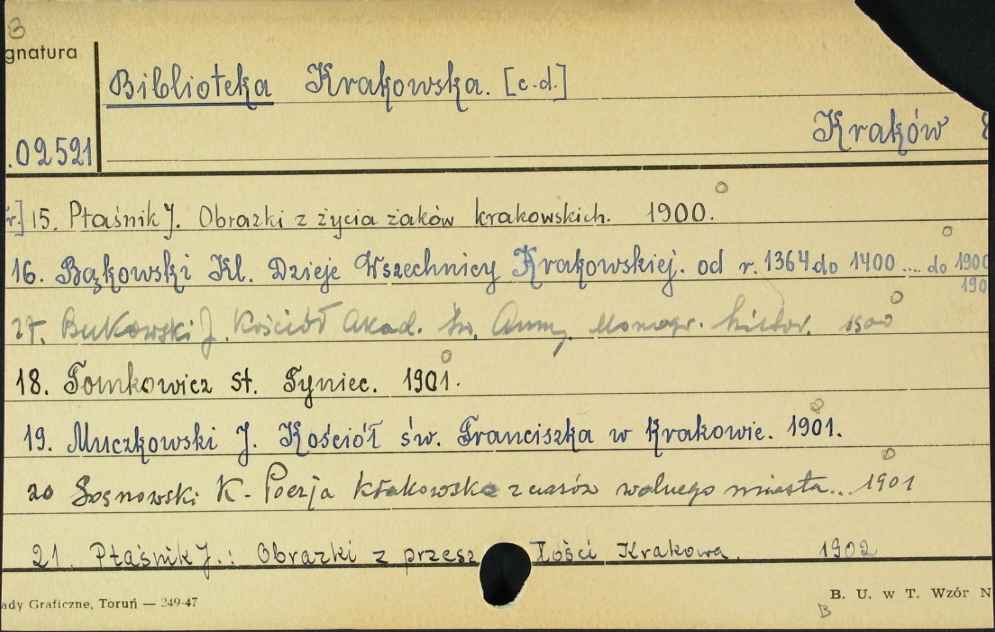 B
gnatura
Biblioteka Krakowska. [c.d.]
Kraków 8
.02521
r.] 15. Ptaśnik J. Obrazki z życia żaków krakowskich. 1900.
16. Bąkowski Kl. Dzieje Wszechnicy Krakowskiej. od r. 1364 do 1400 .... do 1900
190
17. Bukowski J. Kościół Akad. św. Anny, Monogr. histor. 1900
18. Tomkowicz St. Tyniec. 1901.
19. Muczkowski J. Kościół św. Franciszka w Krakowie. 1901.
20 Sosnowski K. - Poezja krakowska z czasów wolnego miasta... 1901
21. Ptaśnik J.: Obrazki z przeszłości Krakowa. 1902
ady Graficzne, Toruń — 249-47
B. U. w T. Wzór N
B